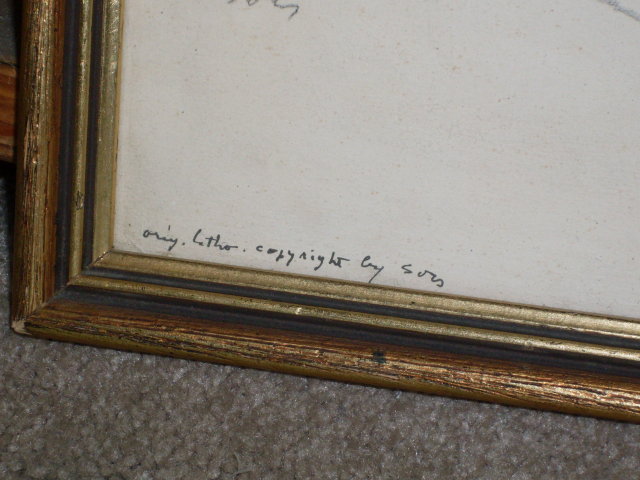 orig. litho. copyright by Sors